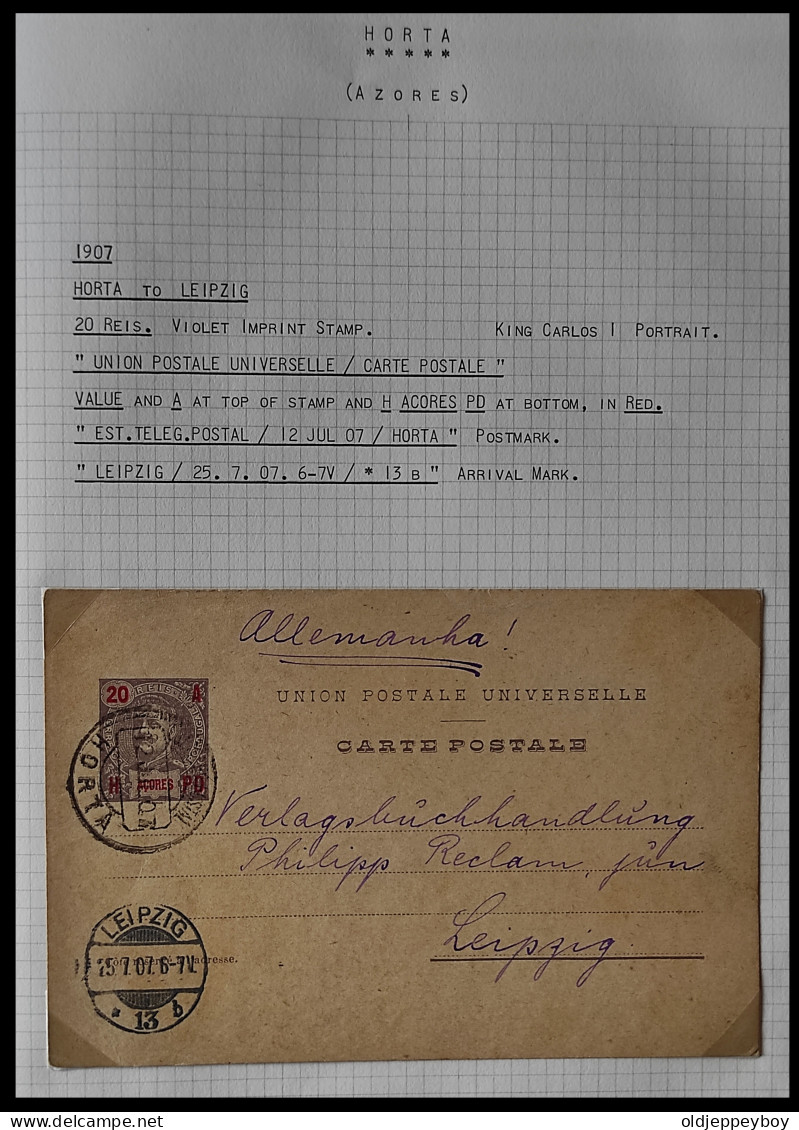 HORTA
*****
(AZORES)
1907
HORTA TO LEIPZIG
20 REIS. VIOLET IMPRINT STAMP. KING CARLOS I PORTRAIT.
" UNION POSTALE UNIVERSELLE / CARTE POSTALE "
VALUE AND A AT TOP OF STAMP AND H ACORES PD AT BOTTOM, IN RED.
" EST.TELEG.POSTAL / 12 JUL 07 / HORTA " POSTMARK.
" LEIPZIG / 25. 7. 07. 6-7V / * 13 B " ARRIVAL MARK.
Allemanha!
UNION POSTALE UNIVERSELLE
CARTE POSTALE
20 REIS A
H AÇORES PD
HORTA
Verlagsbuchhandlung
Philipp Reclam, jun
Leipzig.
LEIPZIG
25.7.07.6-7V.
* 13 b
adresse.
oldjeppeyboy